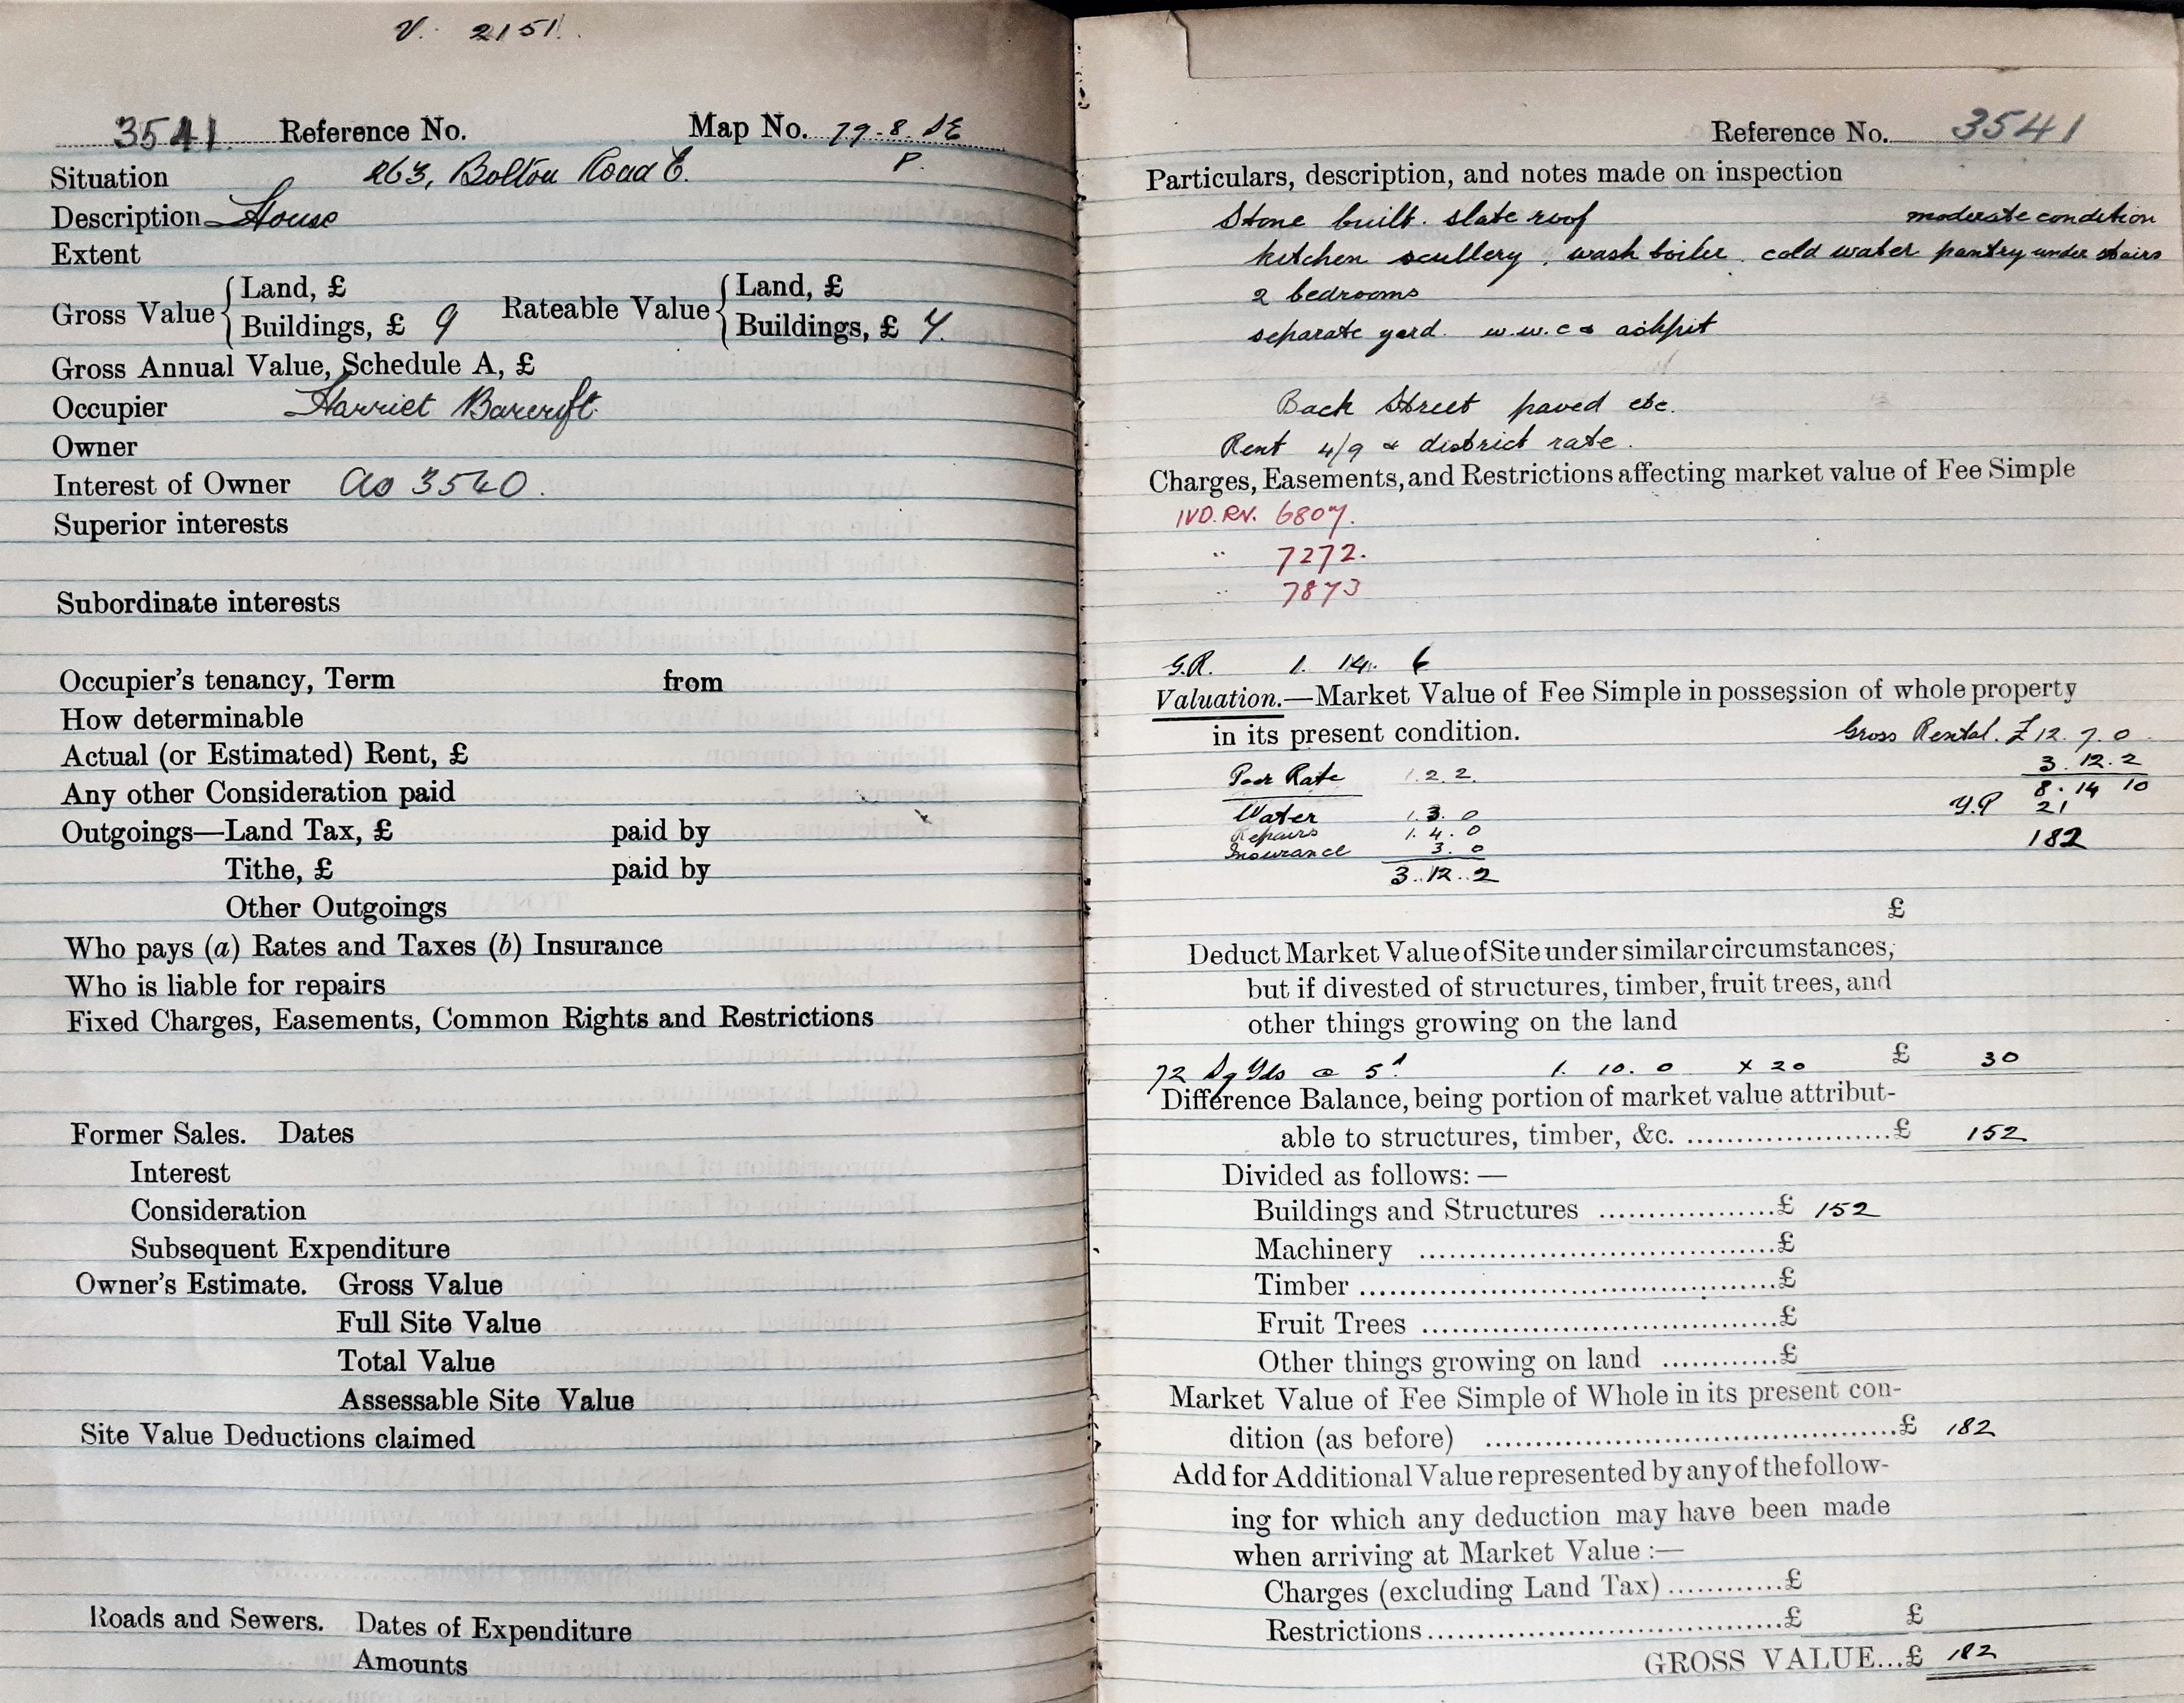 V. 2151.
3541. Reference No. Map No. 79-8. SE
P.
Situation 263, Bolton Road E.
Description House
Extent
Gross Value { Land, £
Buildings, £ 9
Rateable Value { Land, £
Buildings, £ 7.
Gross Annual Value, Schedule A, £
Occupier Harriet Barcroft.
Owner
Interest of Owner as 3540.
Superior interests
Subordinate interests
Occupier's tenancy, Term from
How determinable
Actual (or Estimated) Rent, £
Any other Consideration paid
Outgoings—Land Tax, £ paid by
Tithe, £ paid by
Other Outgoings
Who pays (a) Rates and Taxes (b) Insurance
Who is liable for repairs
Fixed Charges, Easements, Common Rights and Restrictions
Former Sales. Dates
Interest
Consideration
Subsequent Expenditure
Owner's Estimate. Gross Value
Full Site Value
Total Value
Assessable Site Value
Site Value Deductions claimed
Roads and Sewers. Dates of Expenditure
Amounts
Reference No. 3541
Particulars, description, and notes made on inspection
Stone built. slate roof moderate condition
kitchen scullery, wash boiler. cold water pantry under stairs
2 bedrooms
separate yard. w.w.c & ashpit
Back Street paved etc.
Rent 4/9 & district rate.
Charges, Easements, and Restrictions affecting market value of Fee Simple
IVD. RV. 6807.
" 7272.
" 7873
G.R. 1. 14. 6
Valuation.—Market Value of Fee Simple in possession of whole property
in its present condition. Gross Rental. £12. 7. 0
Poor Rate 1. 2. 2. 3. 12. 2
8. 14 10
Water 1. 3. 0 Y.P 21
Repairs 1. 4. 0 182
Insurance 3. 0
3. 12. 2
£
Deduct Market Value of Site under similar circumstances,
but if divested of structures, timber, fruit trees, and
other things growing on the land
72 Sq Yds @ 5d 1. 10. 0 x 20 £ 30
Difference Balance, being portion of market value attribut-
able to structures, timber, &c. ......................£ 152
Divided as follows: —
Buildings and Structures ..................£ 152
Machinery .....................................£
Timber ...........................................£
Fruit Trees .....................................£
Other things growing on land ............£
Market Value of Fee Simple of Whole in its present con-
dition (as before) ...........................................£ 182
Add for Additional Value represented by any of the follow-
ing for which any deduction may have been made
when arriving at Market Value :—
Charges (excluding Land Tax) ............£
Restrictions....................................£ £
GROSS VALUE...£ 182